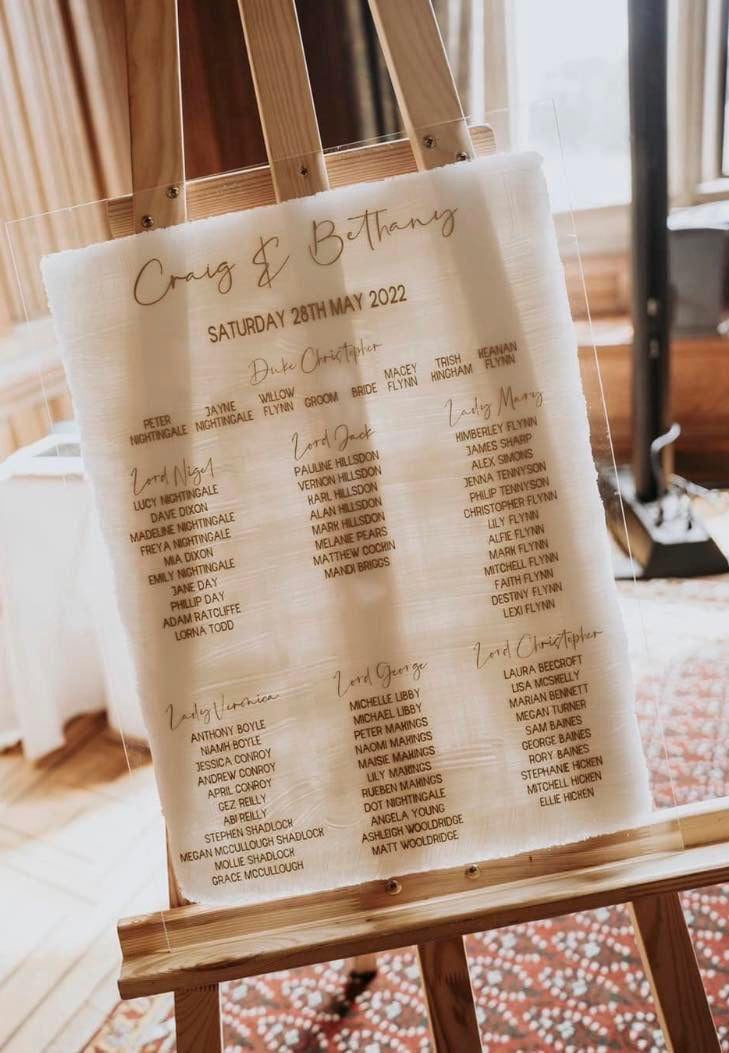 Craig & Bethany
SATURDAY 28TH MAY 2022
Duke Christopher
PETER NIGHTINGALE
JAYNE NIGHTINGALE
WILLOW FLYNN
GROOM
BRIDE
MACEY FLYNN
TRISH KINGHAM
KEANAN FLYNN
Lord Nigel
LUCY NIGHTINGALE
DAVE DIXON
MADELINE NIGHTINGALE
FREYA NIGHTINGALE
MIA DIXON
EMILY NIGHTINGALE
JANE DAY
PHILLIP DAY
ADAM RATCLIFFE
LORNA TODD
Lord Jack
PAULINE HILLSDON
VERNON HILLSDON
KARL HILLSDON
ALAN HILLSDON
MARK HILLSDON
MELANIE PEARS
MATTHEW COCKIN
MANDI BRIGGS
Lady Mary
KIMBERLEY FLYNN
JAMES SHARP
ALEX SIMONS
JENNA TENNYSON
PHILIP TENNYSON
CHRISTOPHER FLYNN
LILY FLYNN
ALFIE FLYNN
MARK FLYNN
MITCHELL FLYNN
FAITH FLYNN
DESTINY FLYNN
LEXI FLYNN
Lady Veronica
ANTHONY BOYLE
NIAMH BOYLE
JESSICA CONROY
ANDREW CONROY
APRIL CONROY
GEZ REILLY
ABI REILLY
STEPHEN SHADLOCK
MEGAN MCCULLOUGH SHADLOCK
MOLLIE SHADLOCK
GRACE MCCULLOUGH
Lord George
MICHELLE LIBBY
MICHAEL LIBBY
PETER MAKINGS
NAOMI MAKINGS
MAISIE MAKINGS
LILY MAKINGS
RUEBEN MAKINGS
DOT NIGHTINGALE
ANGELA YOUNG
ASHLEIGH WOOLDRIDGE
MATT WOOLDRIDGE
Lord Christopher
LAURA BEECROFT
LISA MCSKELLY
MARIAN BENNETT
MEGAN TURNER
SAM BAINES
GEORGE BAINES
RORY BAINES
STEPHANIE HICKEN
MITCHELL HICKEN
ELLIE HICKEN